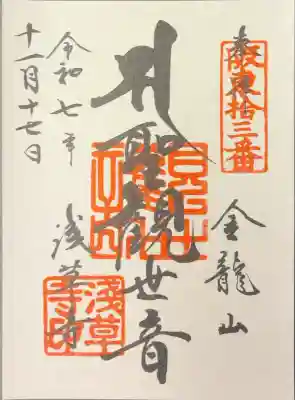 奉拝
坂東拾三番
金龍山
聖観世音
浅草寺
浅草寺印
令和七年
十一月十七日